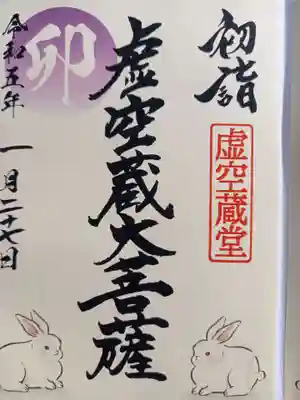 初詣
虚空蔵堂
虚空蔵大菩薩
卯
令和五年
一月二十七日